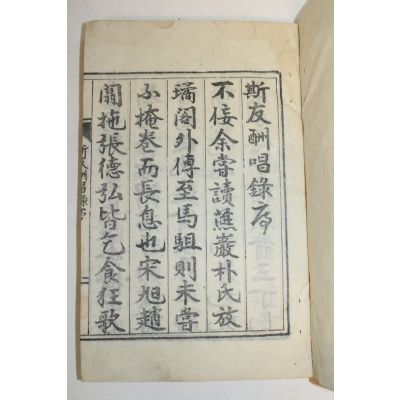 斯友酬唱錄序
不佞余嘗讀蕉巖朴氏放
璚閣外傳至馬駔則未嘗
不掩卷而長息也宋旭趙
闒拖張德弘皆乞食狂歌